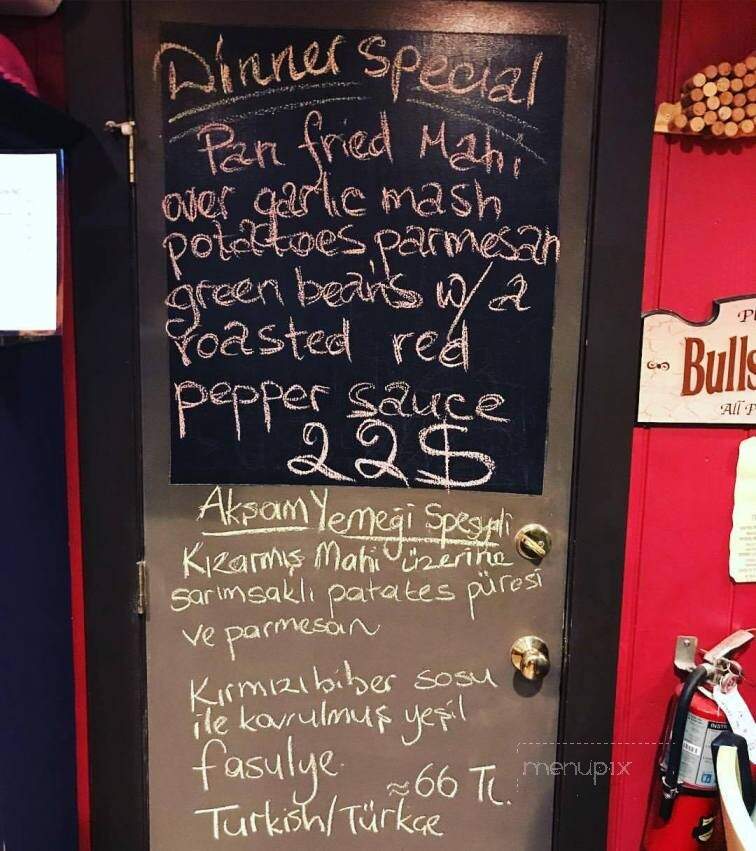 Dinner Special
Pan fried Mahi
over garlic mash
potatoes, parmesan
green beans w/ a
roasted red
pepper sauce
22$
Akşam Yemeği Spesyali
Kızarmış Mahi üzerine
sarımsaklı patates püresi
ve parmesan
Kırmızı biber sosu
ile kavrulmuş yeşil
fasulye.
≈66 TL.
Turkish/Türkçe
menupix
Bulls
All